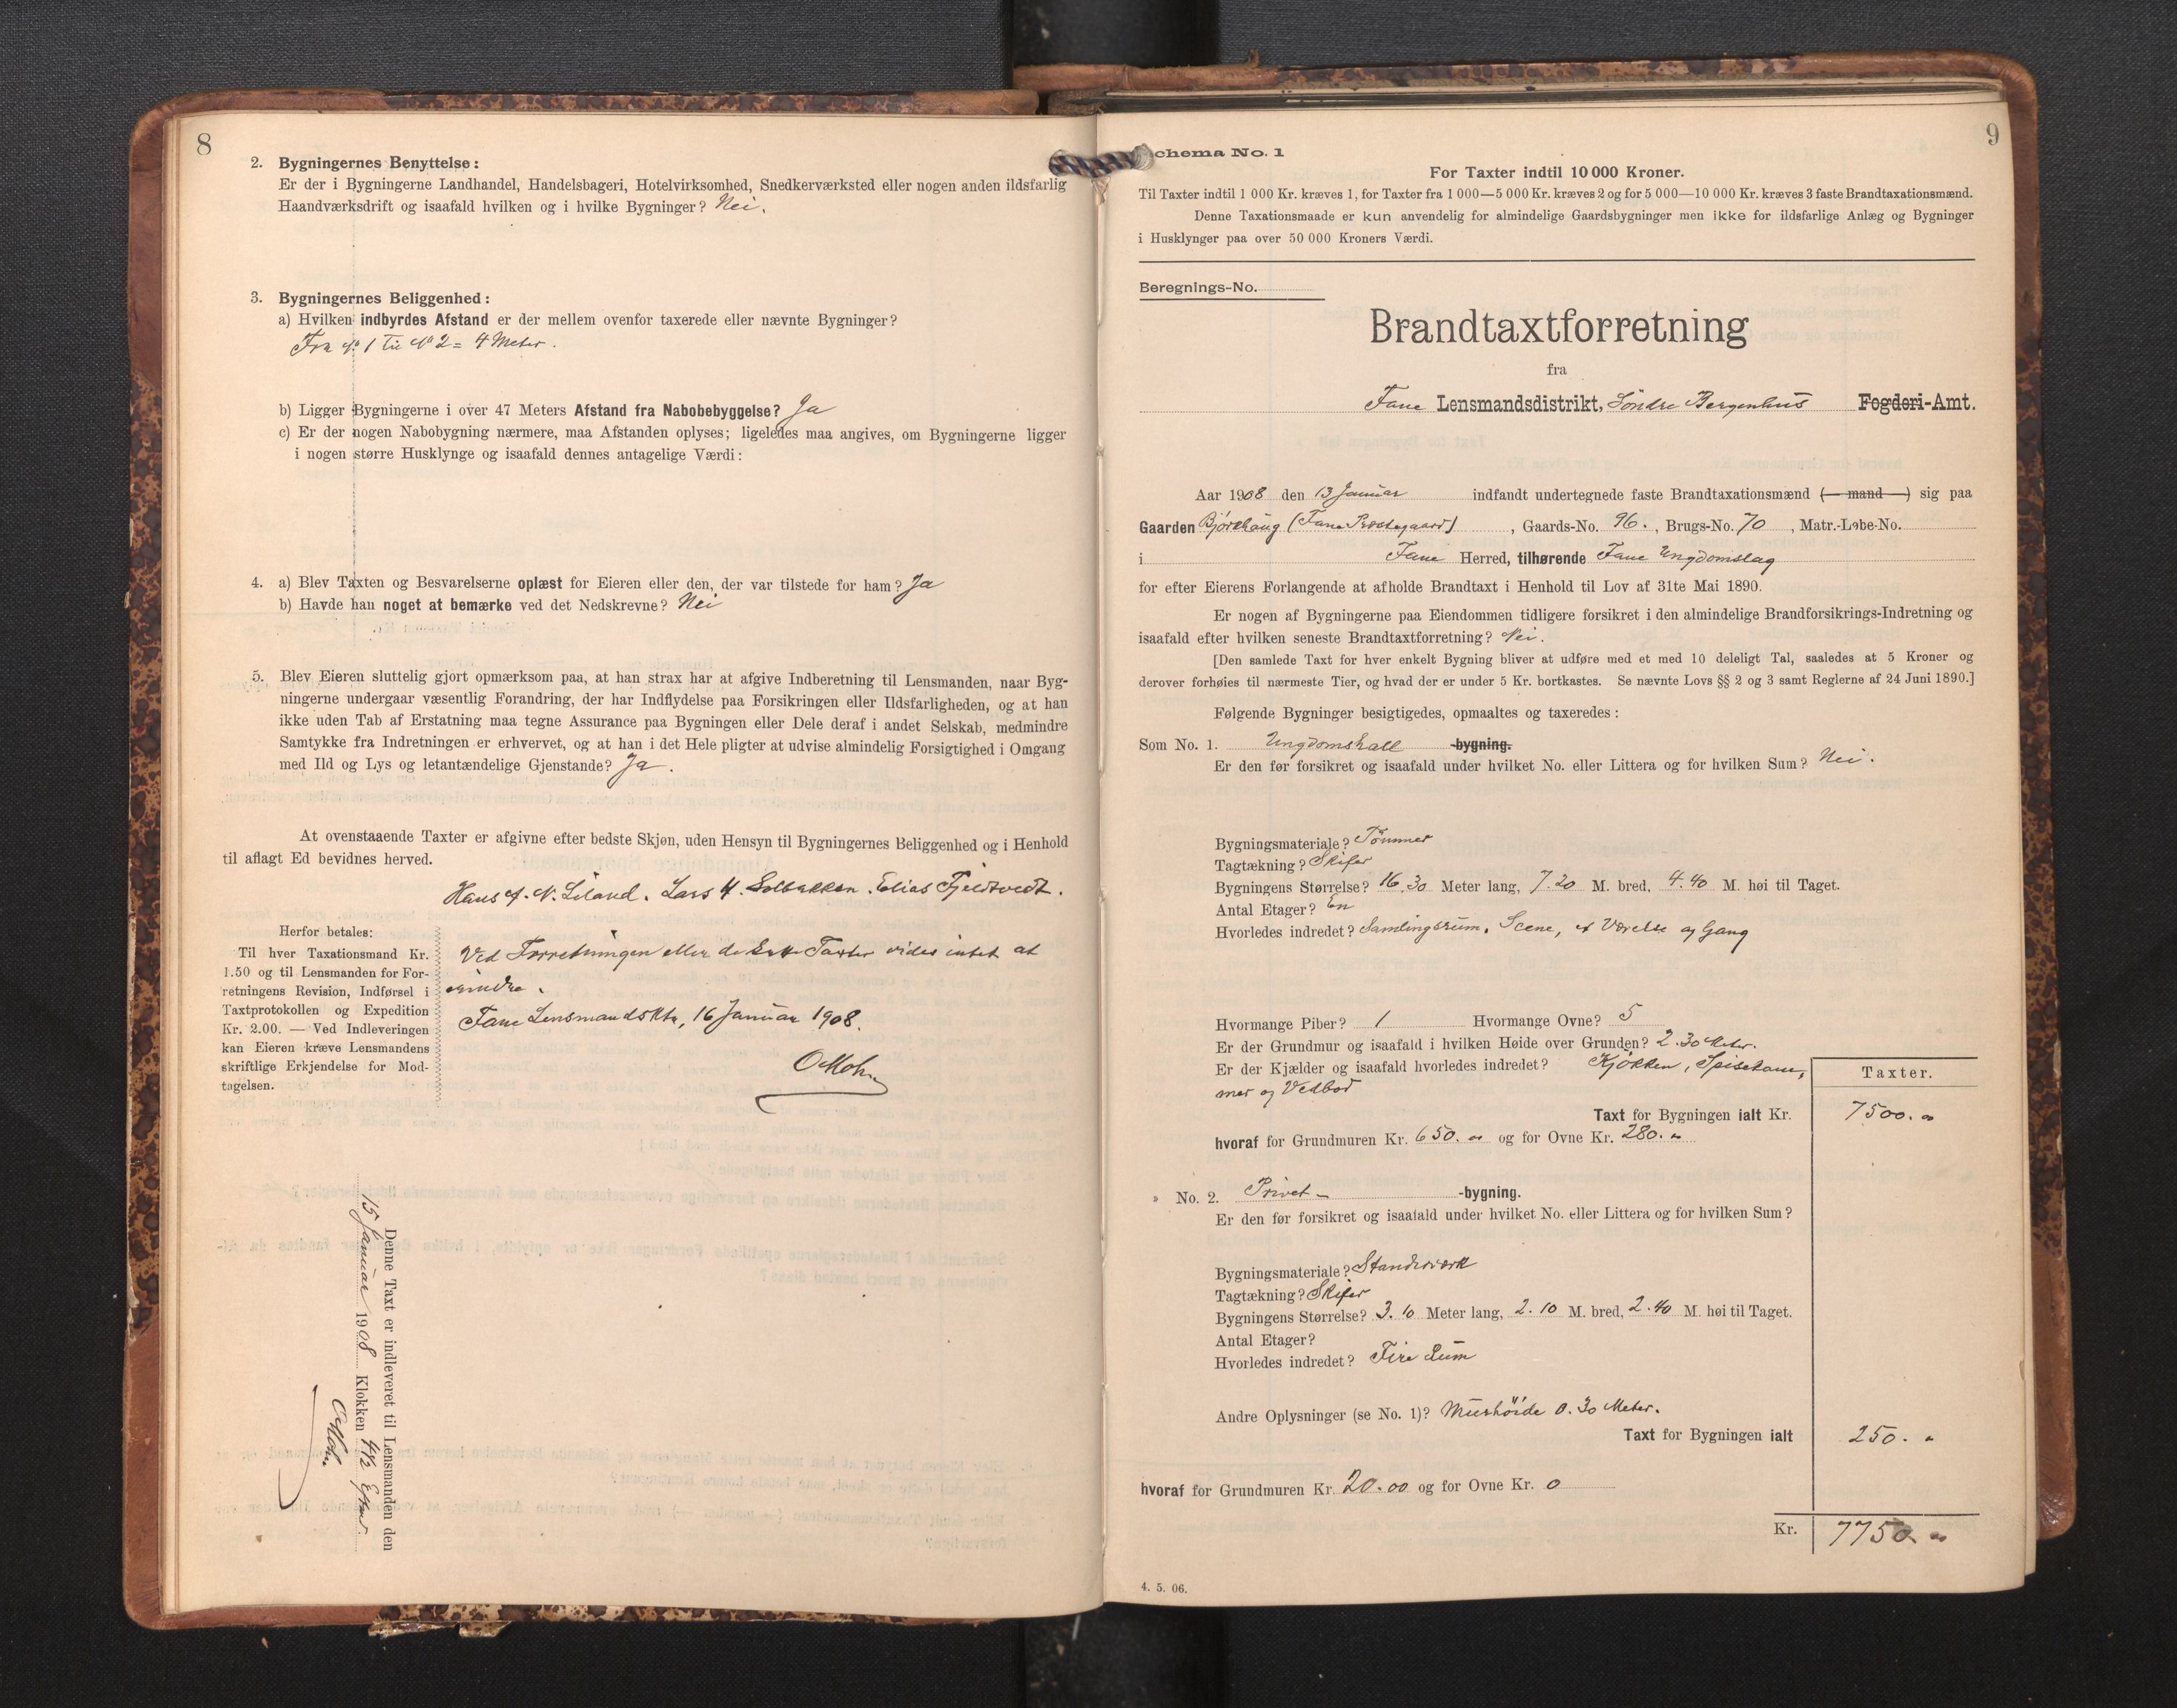 8
2. Bygningernes Benyttelse:
Er der i Bygningerne Landhandel, Handelsbageri, Hotelvirksomhed, Snedkerværksted eller nogen anden ildsfarlig
Haandværksdrift og isaafald hvilken og i hvilke Bygninger? Nei.
3. Bygningernes Beliggenhed:
a) Hvilken indbyrdes Afstand er der mellem ovenfor taxerede eller nævnte Bygninger?
Fra No 1 til No 2 = 4 Meter.
b) Ligger Bygningerne i over 47 Meters Afstand fra Nabobebyggelse? Ja
c) Er der nogen Nabobygning nærmere, maa Afstanden oplyses; ligeledes maa angives, om Bygningerne ligger
i nogen større Husklynge og isaafald dennes antagelige Værdi:
4. a) Blev Taxten og Besvarelserne oplæst for Eieren eller den, der var tilstede for ham? Ja
b) Havde han noget at bemærke ved det Nedskrevne? Nei
5. Blev Eieren sluttelig gjort opmærksom paa, at han strax har at afgive Indberetning til Lensmanden, naar Byg-
ningerne undergaar væsentlig Forandring, der har Indflydelse paa Forsikringen eller Ildsfarligheden, og at han
ikke uden Tab af Erstatning maa tegne Assurance paa Bygningen eller Dele deraf i andet Selskab, medmindre
Samtykke fra Indretningen er erhvervet, og at han i det Hele pligter at udvise almindelig Forsigtighed i Omgang
med Ild og Lys og letantændelige Gjenstande? Ja.
At ovenstaaende Taxter er afgivne efter bedste Skjøn, uden Hensyn til Bygningernes Beliggenhed og i Henhold
til aflagt Ed bevidnes herved.
Hans A. N. Liland. Lars H. Solbakken. Elias Fjeldtvedt.
Herfor betales:
Til hver Taxationsmand Kr.
1.50 og til Lensmanden for For-
retningens Revision, Indførsel i
Taxtprotokollen og Expedition
Kr. 2.00. — Ved Indleveringen
kan Eieren kræve Lensmandens
skriftlige Erkjendelse for Mod-
tagelsen.
Ved Forretningen eller de Taxter vides intet at
erindre.
Fane Lensmandsktr, 16 Januar 1908.
O Mohn
Denne Taxt er indleveret til Lensmanden den
15 Januar 1908 Klokken 4 1/2 Efterm.
O Mohn.
9
chema No. 1
For Taxter indtil 10 000 Kroner.
Til Taxter indtil 1 000 Kr. kræves 1, for Taxter fra 1 000—5 000 Kr. kræves 2 og for 5 000—10 000 Kr. kræves 3 faste Brandtaxationsmænd.
Denne Taxationsmaade er kun anvendelig for almindelige Gaardsbygninger men ikke for ildsfarlige Anlæg og Bygninger
i Husklynger paa over 50 000 Kroners Værdi.
Beregnings-No.
Brandtaxtforretning
fra
Fane Lensmandsdistrikt, Söndre Bergenhus Fogderi-Amt.
Aar 1908 den 13 Januar indfandt undertegnede faste Brandtaxationsmænd (— mand —) sig paa
Gaarden Bjørkhaug (Fane Prestegaard), Gaards-No. 96., Brugs-No. 70, Matr.-Løbe-No.
i Fane Herred, tilhørende Fane Ungdomslag
for efter Eierens Forlangende at afholde Brandtaxt i Henhold til Lov af 31te Mai 1890.
Er nogen af Bygningerne paa Eiendommen tidligere forsikret i den almindelige Brandforsikrings-Indretning og
isaafald efter hvilken seneste Brandtaxtforretning? Nei.
[Den samlede Taxt for hver enkelt Bygning bliver at udføre med et med 10 deleligt Tal, saaledes at 5 Kroner og
derover forhøies til nærmeste Tier, og hvad der er under 5 Kr. bortkastes. Se nævnte Lovs §§ 2 og 3 samt Reglerne af 24 Juni 1890.]
Følgende Bygninger besigtigedes, opmaaltes og taxeredes:
Som No. 1. Ungdomshall -bygning.
Er den før forsikret og isaafald under hvilket No. eller Littera og for hvilken Sum? Nei.
Bygningsmateriale? Tömmer
Tagtækning? Skifer
Bygningens Størrelse? 16.30 Meter lang, 7.20 M. bred, 4.40 M. høi til Taget.
Antal Etager? En
Hvorledes indredet? Samlingsrum, Scene, et Værelse og Gang
Hvormange Piber? 1 Hvormange Ovne? 5
Er der Grundmur og isaafald i hvilken Høide over Grunden? 2.30 Meter.
Er der Kjælder og isaafald hvorledes indredet? Kjökken, Spisekam-
mer og Vedbod
Taxter.
Taxt for Bygningen ialt Kr. 7500. "
hvoraf for Grundmuren Kr. 650. " og for Ovne Kr. 280. "
" No. 2. Privet- -bygning.
Er den før forsikret og isaafald under hvilket No. eller Littera og for hvilken Sum?
Bygningsmateriale? Standverk
Tagtækning? Skifer
Bygningens Størrelse? 3.10 Meter lang, 2.10 M. bred, 2.40 M. høi til Taget.
Antal Etager?
Hvorledes indredet? Fire Rum
Andre Oplysninger (se No. 1)? Murhöide 0.30 Meter.
Taxt for Bygningen ialt 250. "
hvoraf for Grundmuren Kr. 20.00 og for Ovne Kr. 0
Kr. 7750. "
4. 5. 06.